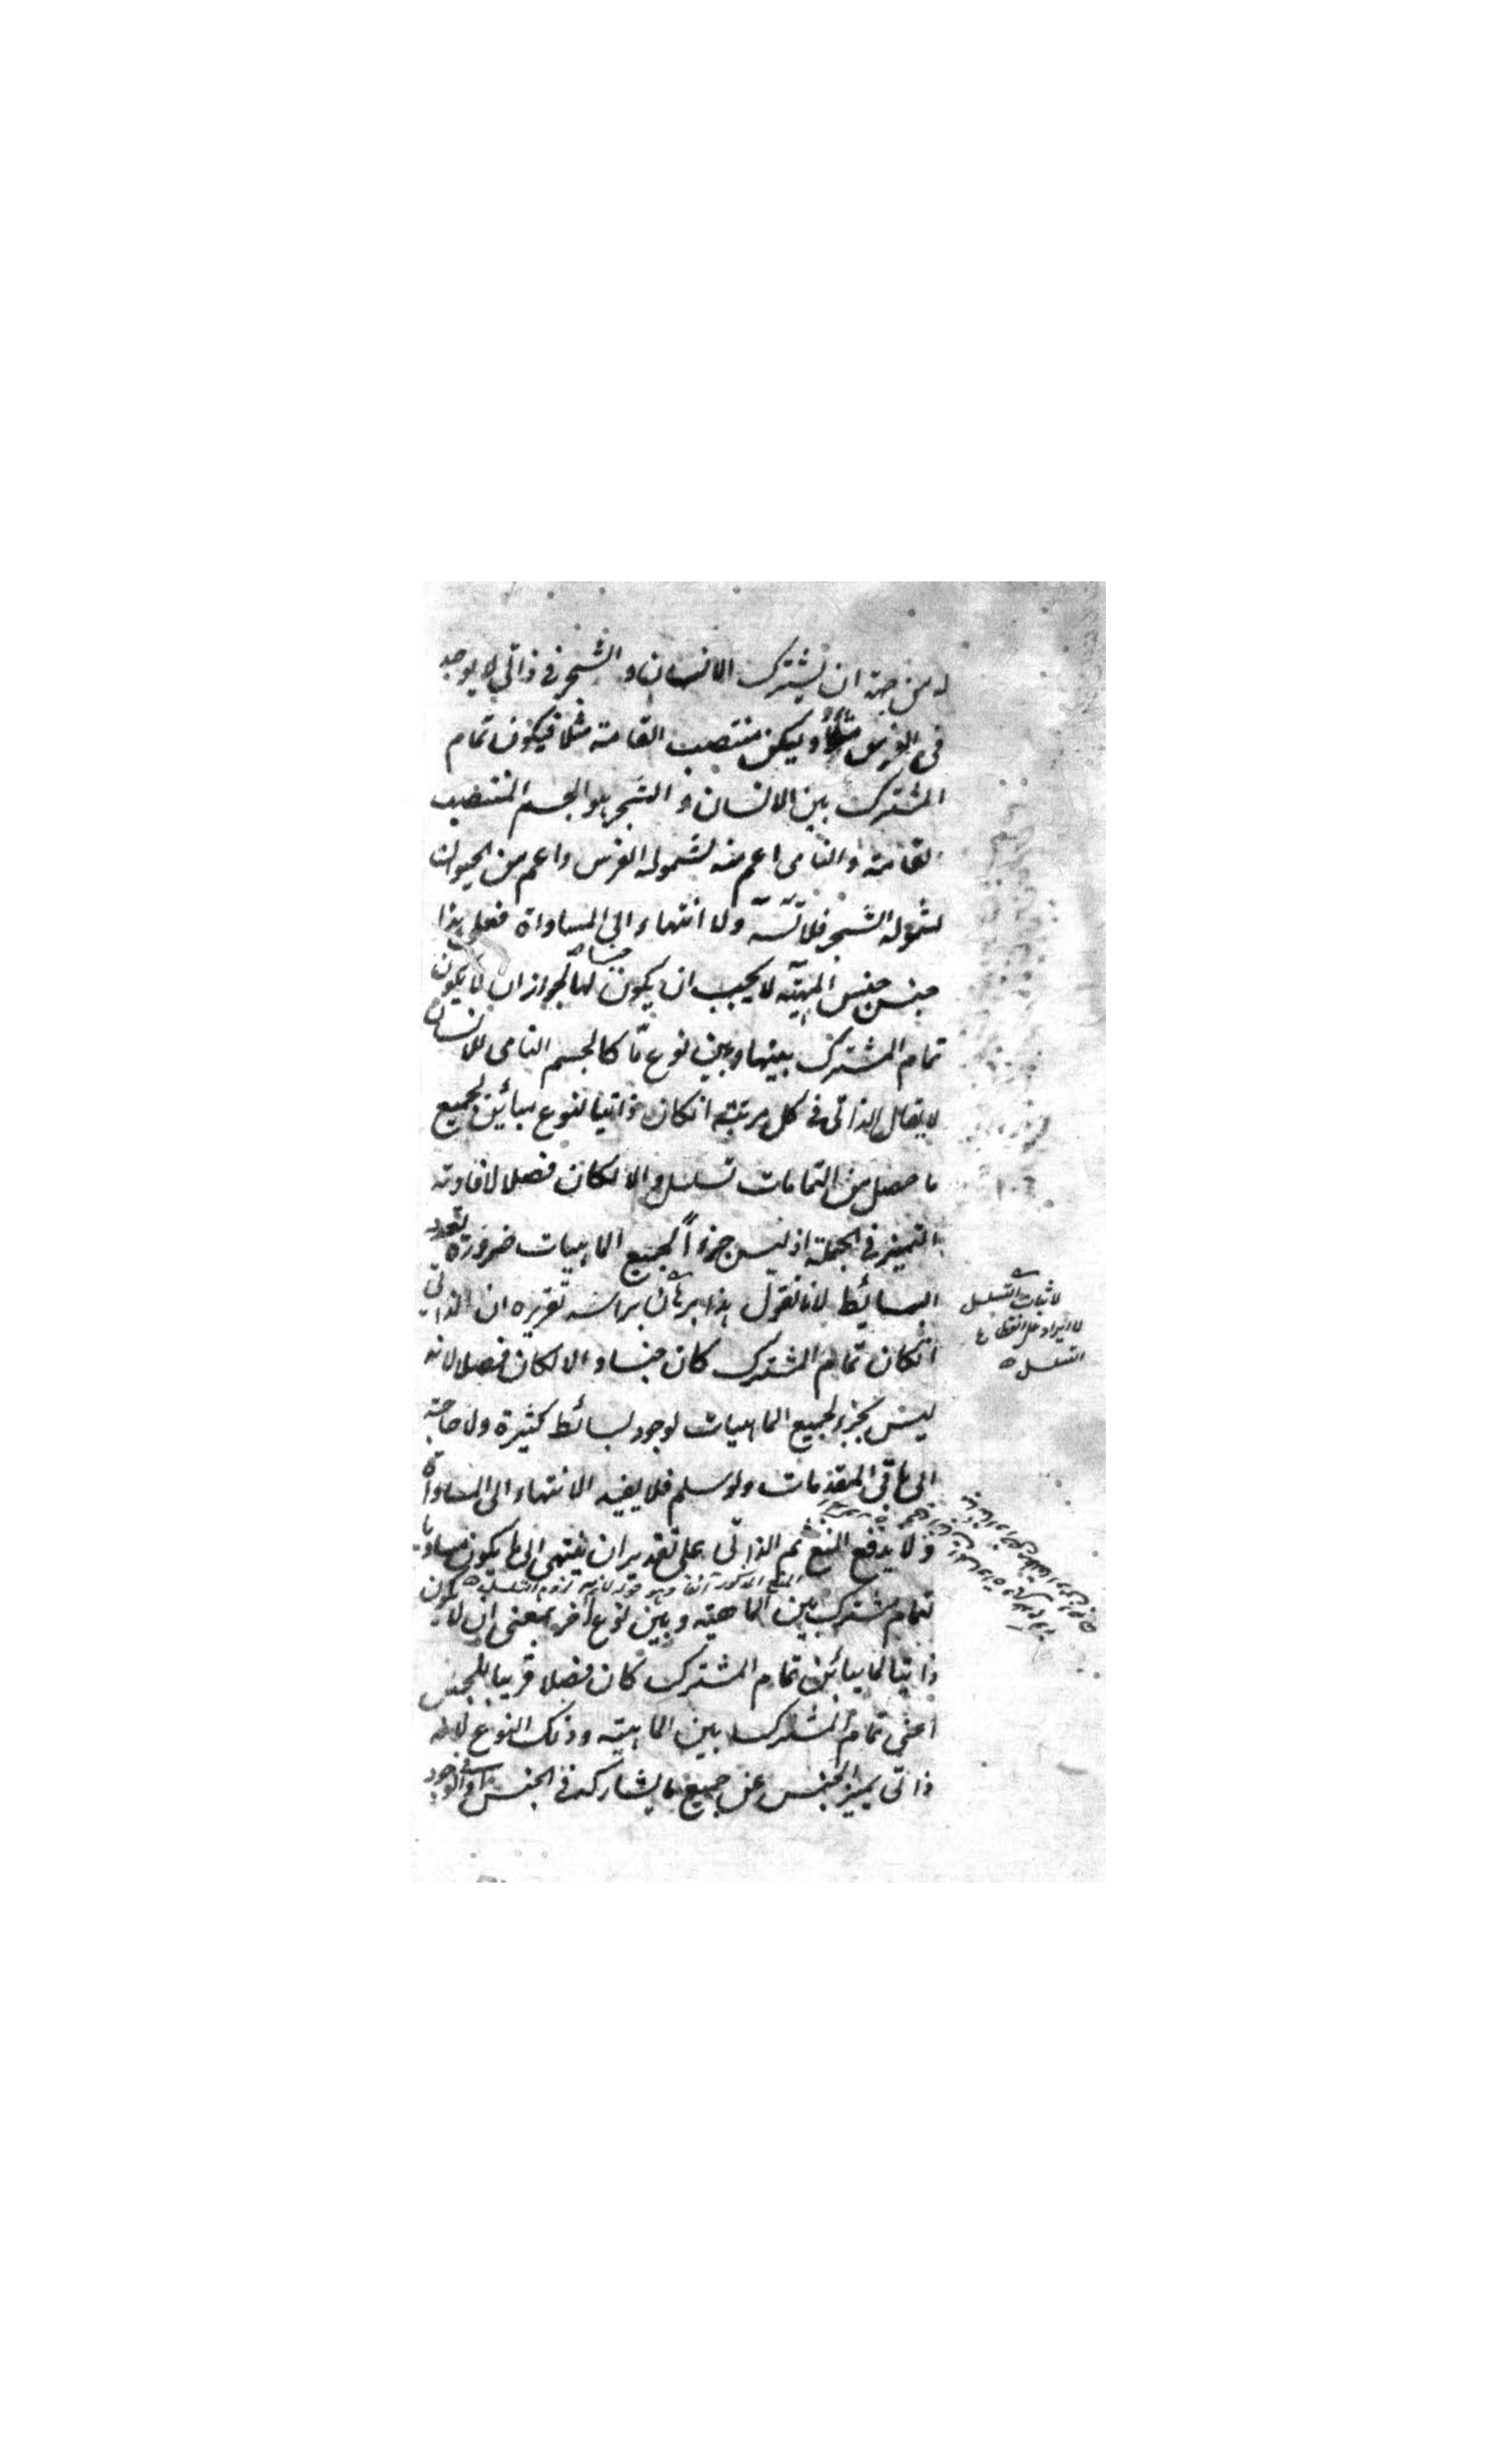 له من جهة ان يشترك الانسان و الشجر فى ذاتى لا يوجد
فى الفرس مثلا وليكن منتصب القامة مثلا فيكون تمام
المشترك بين الانسان و الشجر هو الجسم المنتصب
القامة و النامى اعم منه لشموله الفرس واعم من الحيوان
لشموله الشجر فلا تسلسل ولا انتهاء الى المساواة فعلى هذا
جنس جنس المهية لا يجب ان يكون جنسا لها لجواز ان لا يكون
تمام المشترك بينها وبين نوع ما كالجسم النامى للانسان
لا يقال الذاتى فى كل مرتبة انكان ذاتيا لنوع مبائن لجميع
ما حصل من التمامات تسلسل والا لكان فصلا لافادته
التميز فى الجملة اذ ليس جزءاً لجميع الماهيات ضرورة تعدد
البسائط لانا نقول هذا برهان براسه تقريره ان الذاتى
انكان تمام المشترك كان جنسا والا لكان فصلا لانه
ليس بجزء لجميع الماهيات لوجود بسائط كثيرة ولا حاجة
الى باقى المقدمات ولو سلم فلا يفيد الانتهاء الى المساواة
ولا يدفع المنع ثم الذاتى على تقدير ان ينتهى الى ما يكون مساويا
المنع المذكور آنفا وهو قوله لانم لزوم التسلسل
لتمام مشترك بين الماهية وبين نوع آخر بمعنى ان لا يكون
ذاتيا لما يبائن تمام المشترك كان فصلا قريبا للجنس
اعنى تمام المشترك بين الماهية وذلك النوع لانه
ذاتى يميز الجنس عن جميع ما يشاركه فى الجنس او الوجود
لا ثبات التسلسل
لا ايراد على انقطاع
التسلسل